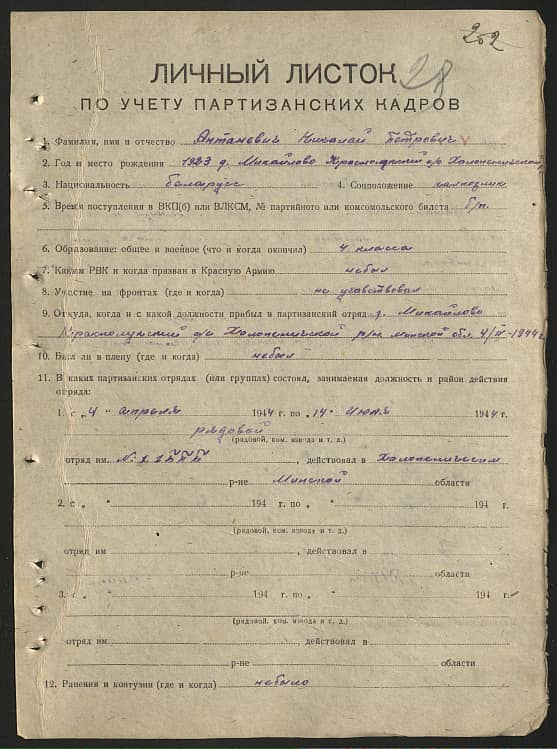 252
28
ЛИЧНЫЙ ЛИСТОК
ПО УЧЕТУ ПАРТИЗАНСКИХ КАДРОВ
1. Фамилия, имя и отчество Антаневич Николай Петрович
2. Год и место рождения 1923 д. Михайлово с/с Холопенический
3. Национальность беларус 4. Соцположение колхозник
5. Время поступления в ВКП(б) или ВЛКСМ, № партийного или комсомольского билета б/п.
6. Образование: общее и военное (что и когда окончил) 4 класса
7. Каким РВК и когда призван в Красную Армию небыл
8. Участие на фронтах (где и когда) не учавствовал
9. Откуда, когда и с какой должности прибыл в партизанский отряд д. Михайлово
с/с Холопенической р/на минской обл. 4/IV-1944 г
10. Был ли в плену (где и когда) небыл
11. В каких партизанских отрядах (или группах) состоял, занимаемая должность и район действия
отряда:
1. с „4 " апреля 1944 г. по „14 " июня 1944 г.
рядовой
(рядовой, ком. взвода и т. д.)
отряд им. , действовал в Холопеническим
р-не Минской области
2. с „ " 194 г. по „ " 194 г.
(рядовой, ком. взвода и т. д.)
отряд им , действовал в
р-не области
3. с „ " 194 г. по „ " 194 г.
(рядовой, ком. взвода и т. д.)
отряд им , действовал в
р-не области
12. Ранения и контузии (где и когда) небыло